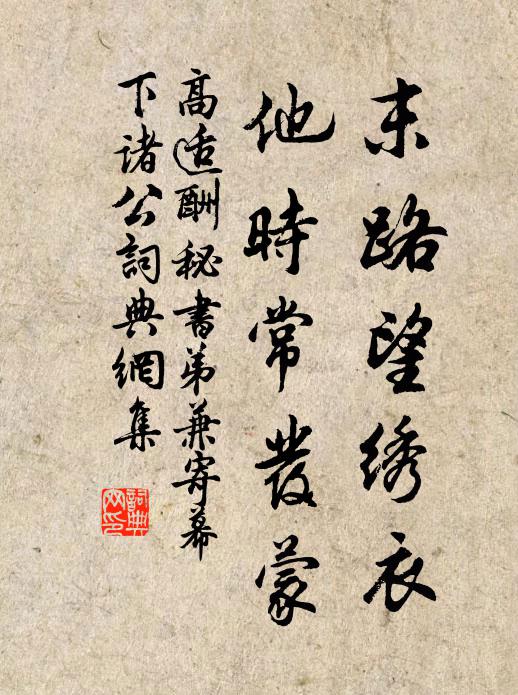 末路望绣衣
他時常發蒙
高适酬秘書弟兼寄幕
下诸公詞典網集
詞典
网印